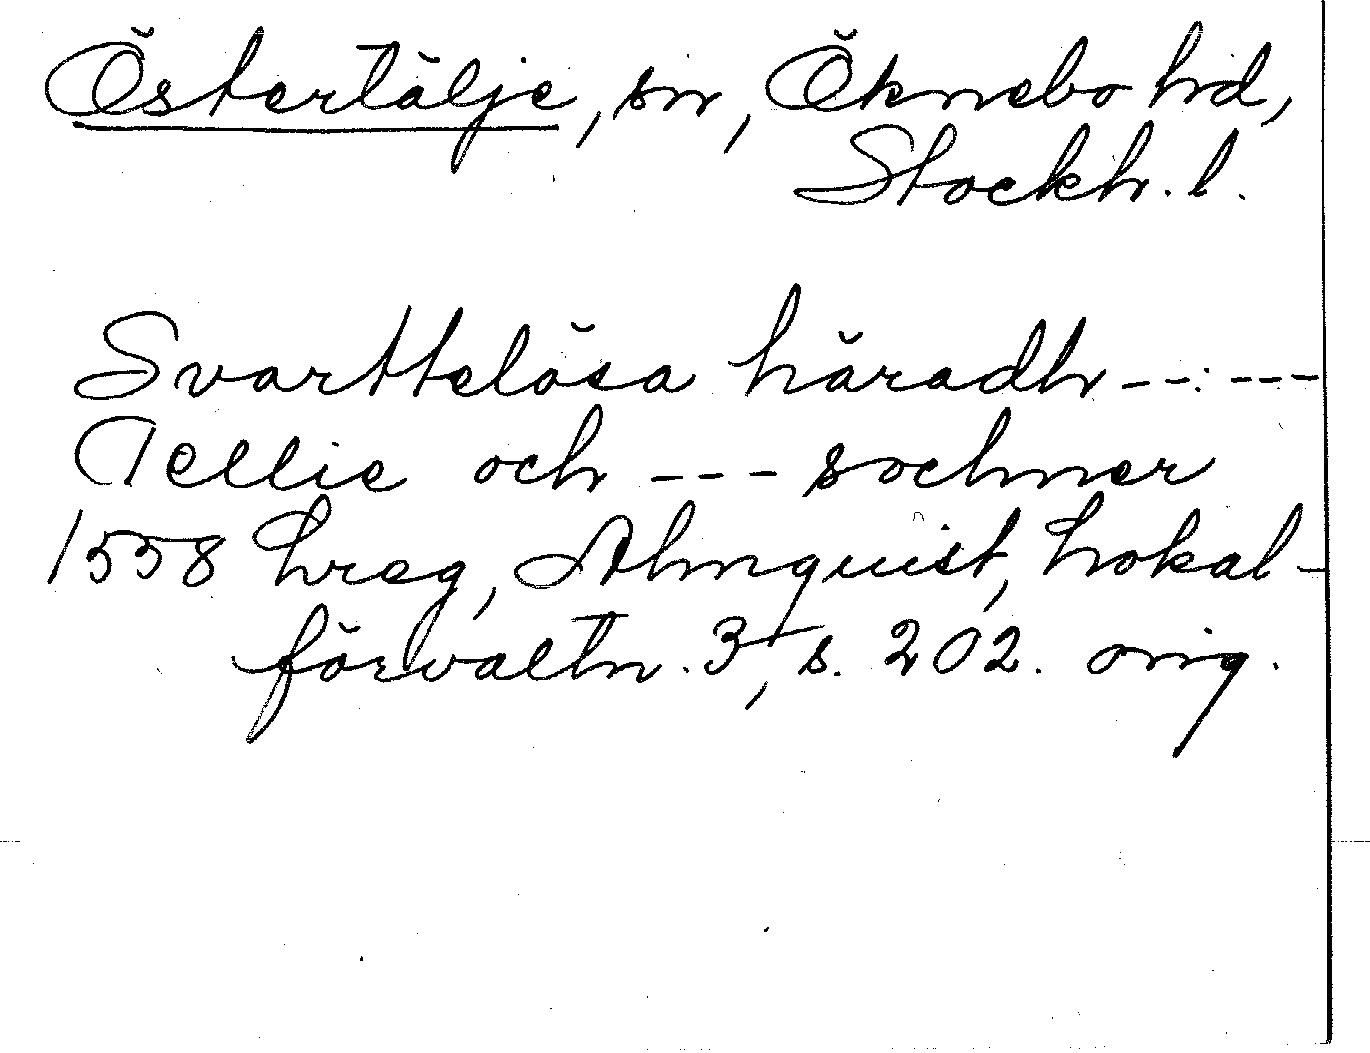 Östertälje, sn, Öknebo hd,
Stockh. l.
Svarttelösa häradh -- ---
Tellie och --- sochner
1558 hreg, Almquist, Lokal-
förvaltn. 3, s. 202. orig.